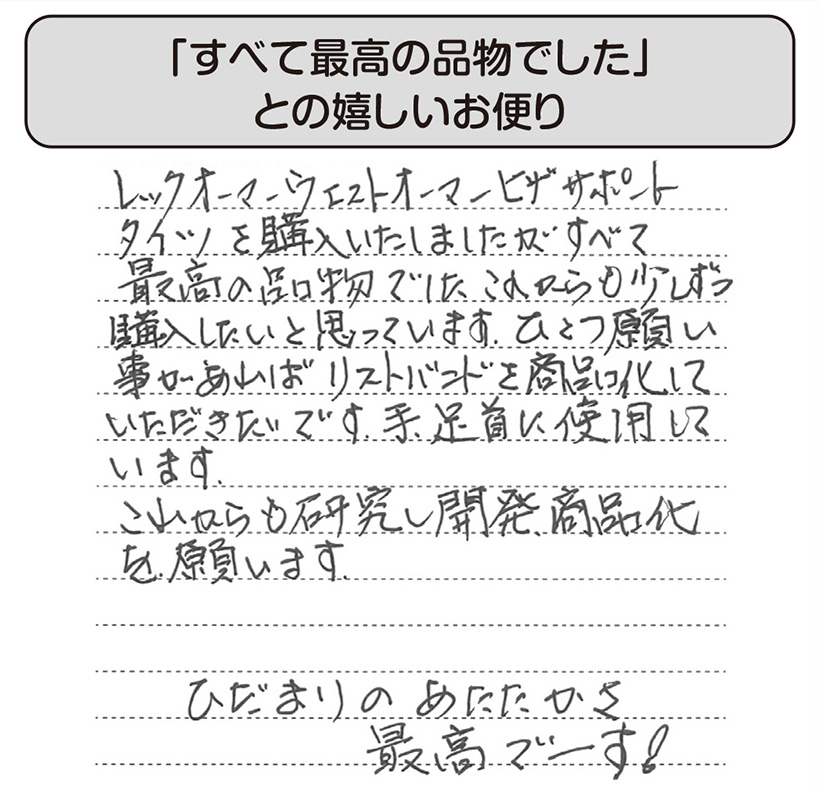 「すべて最高の品物でした」
との嬉しいお便り
レックオーマーウエストオーマーヒザサポート
タイツを購入いたしましたがすべて
最高の品物でした これからも少しずつ
購入したいと思っています. ひとつ願い
事があればリストバンドを商品化して
いただきたいです. 手、足首に使用して
います.
これからも研究し開発、商品化
を.願います.
ひだまりの あたたかさ
最高でーす!